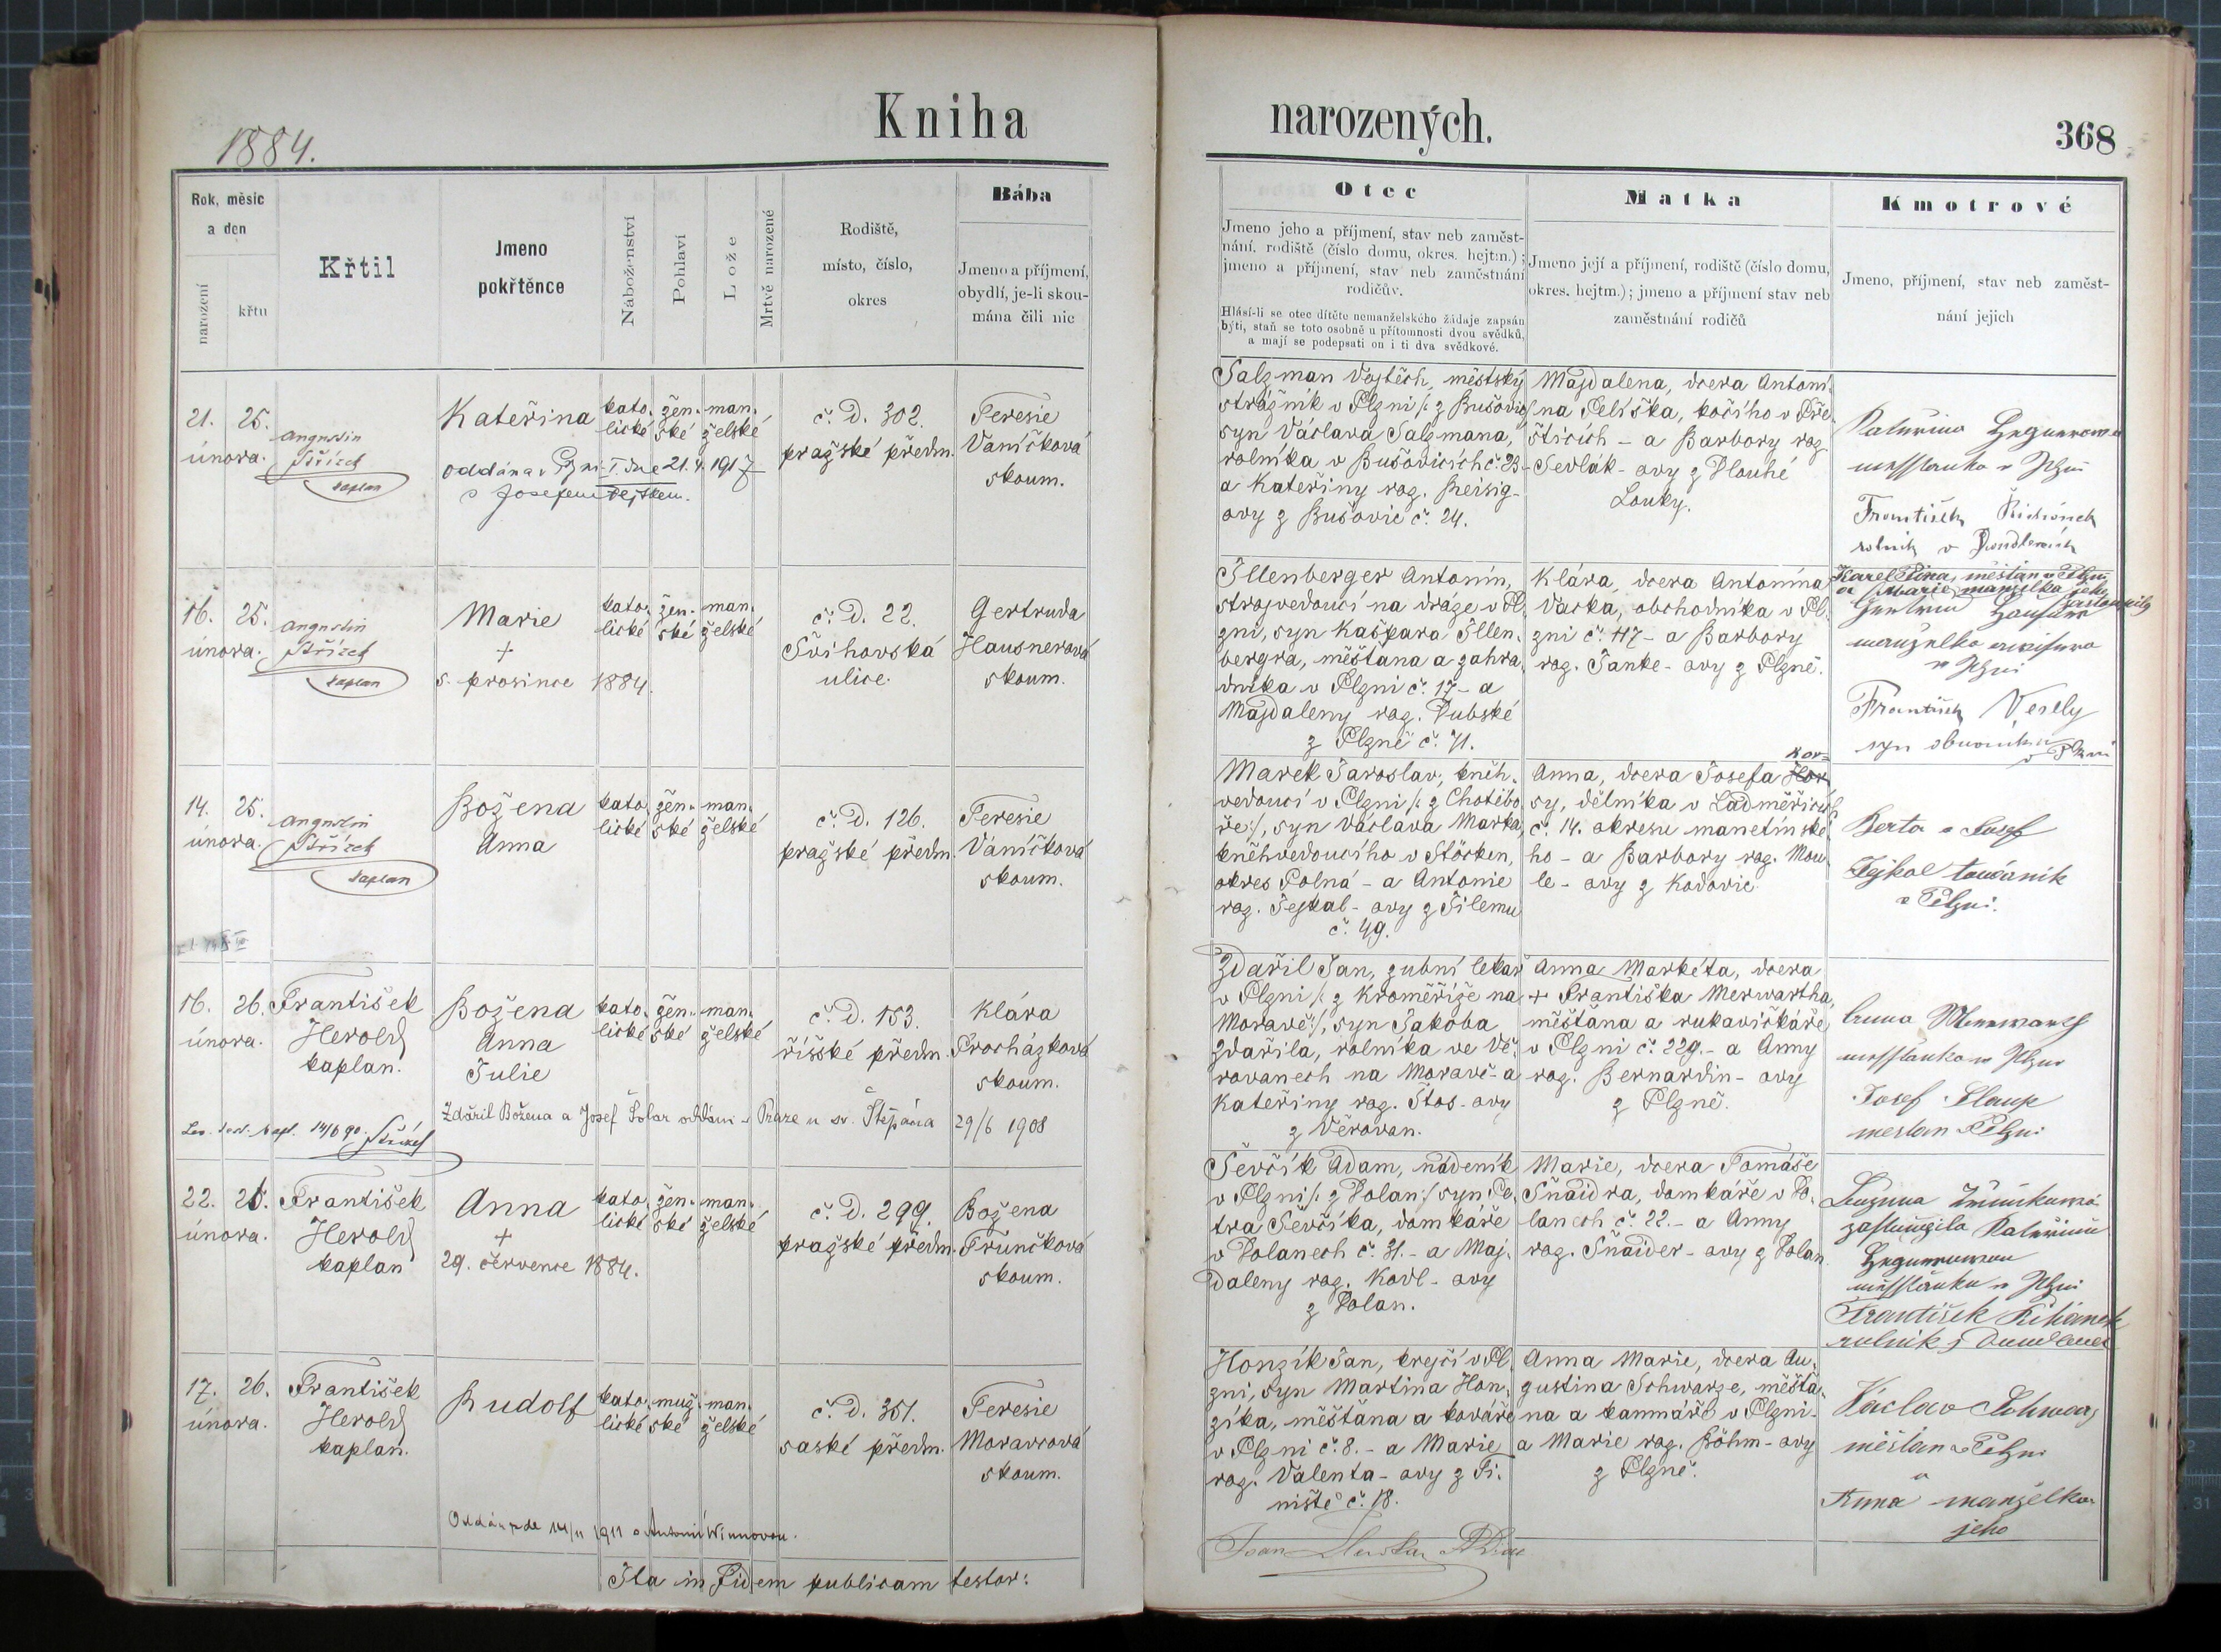 1884.
Kniha narozených.
368
Rok, měsíc
a den
narození
křtu
Křtil
Jmeno
pokřtěnce
Náboženství
Pohlaví
Lože
Mrtvě narozené
Rodiště,
místo, číslo,
okres
Bába
Jmeno a příjmení,
obydlí, je-li skou-
mána čili nic
Otec
Jmeno jeho a příjmení, stav neb zaměst-
nání. rodiště (číslo domu, okres. hejtm.);
jmeno a příjmení, stav neb zaměstnání
rodičův.
Hlásí-li se otec dítěte nemanželského žádaje zapsán
býti, staň se toto osobně u přítomnosti dvou svědků,
a mají se podepsati on i ti dva svědkové.
Matka
Jmeno její a příjmení, rodiště (číslo domu,
okres. hejtm.); jmeno a příjmení stav neb
zaměstnání rodičů
Kmotrové
Jmeno, příjmení, stav neb zaměst-
nání jejich
21. 25.
února.
Augustin
Střízek
kaplan
Kateřina
oddána v Plzni I. dne 21. 4. 1917
s Josefem Pejskem.
kato. žen. man.
lické ské želské
č. D. 302.
pražské předm.
Teresie
Vaníčková
skoum.
Salzman Vojtěch, městský
strážník v Plzni /: z Bušovic
syn Václava Salzmana,
rolníka v Bušovicích č. 23-
a Kateřiny roz. Beisig-
ovy z Bušovic č. 24.
Magdalena, dcera Antoní-
na Peliška, kočího v Pře-
šticích - a Barbory roz.
Sedlák- ovy z Dlouhé
Louky.
František
rolník v
16. 25.
února.
Augustin
Střízek
kaplan
Marie
+
5. prosince 1884.
kato. žen. man.
lické ské želské
č. D. 22.
Švihovská
ulice.
Gertruda
Hausnerová
skoum.
Illenberger Antonín,
strojvedoucí na dráze v Pl-
zni, syn Kašpara Illen-
bergra, měšťana a zahra-
dníka v Plzni č. 17- a
Magdaleny roz. Dubské
z Plzně č. 71.
Klára, dcera Antonína
Vacka, obchodníka v Pl-
zni č. 117- a Barbory
roz. Janke- ovy z Plzně.
Karel Pina, měšťan v Plzni
a Marie, manželka jeho
František Veselý
syn obuvníka
v Plzni
14. 25.
února.
Augustin
Střízek
kaplan
Božena
Anna
kato. žen. man.
lické ské želské
č. D. 126.
pražské předm.
Teresie
Vaníčková
skoum.
Marek Jaroslav, knih-
vedoucí v Plzni /: z Chotěbo
ře:/, syn Václava Marka,
knihvedoucího v Stöcken,
okres Polná - a Antonie
roz. Tejkal- ovy z Jilemu
č. 49.
Kor=
Anna, dcera Josefa Hor
sy, dělníka v Ladměřicích
č. 14. okresu manetínské-
ho - a Barbory roz. Mou-
le- ovy z Kodovic.
Berta a Josef
Tejkal továrník
v Plzni.
16. 26.
února.
František
Herold
kaplan.
Božena
Anna
Julie
kato. žen. man.
lické ské želské
č. D. 153.
říšské předm.
Klára
Procházková
skoum.
Zdařil Božena a Josef Šolar oddáni v Praze u sv. Štěpána 29/6 1908
14/6 90. Střízek
Zdařil Jan, zubní lékař
v Plzni /: z Kroměříže na
Moravě:/, syn Jakoba
Zdařila, rolníka ve Vě-
rovanech na Moravě- a
Kateřiny roz. Štos- ovy
z Věrovan.
Anna Markéta, dcera
+ Františka Merwartha,
měšťana a rukavičkáře
v Plzni č. 229.- a Anny
roz. Bernardin- ovy
z Plzně.
Anna Merwarth
měšťanka v Plzni
Josef
měšťan v Plzni
22. 26.
února.
František
Herold
kaplan
Anna
+
29. července 1884.
kato. žen. man.
lické ské želské
č. D. 299.
pražské předm.
Božena
Trunčková
skoum.
Ševčík Adam, nádeník
v Plzni /: z Dolan:/ syn Pe-
tra Ševčíka, domkáře
v Dolanech č. 31.- a Maj-
daleny roz. Kodl- ovy
z Dolan.
Marie, dcera Tomáše
Šnaidra, domkáře v Do-
lanech č. 22.- a Anny
roz. Šnaider- ovy z Dolan.
zastoupila Kateřinu
měšťanku v Plzni
František Řihánek
rolník z
17. 26.
února.
František
Herold
kaplan.
Rudolf
kato. muž. man.
lické ské želské
č. D. 351.
saské předm.
Teresie
Moravcová
skoum.
Oddán zde 14/11 1911 s Antonií Winnovou.
Honzík Jan, krejčí v Pl-
zni, syn Martina Hon-
zíka, měšťana a kováře
v Plzni č. 8.- a Marie
roz. Valenta- ovy z Tí-
niště č. 18.
Anna Marie, dcera Au-
gustina Schwarze, měšťa-
na a kammáře v Plzni-
a Marie roz. Böhm- ovy
z Plzně.
Václav Schwarz
měšťan v Plzni
a
Anna manželka
jeho
Ita in Fidem publicam testor: